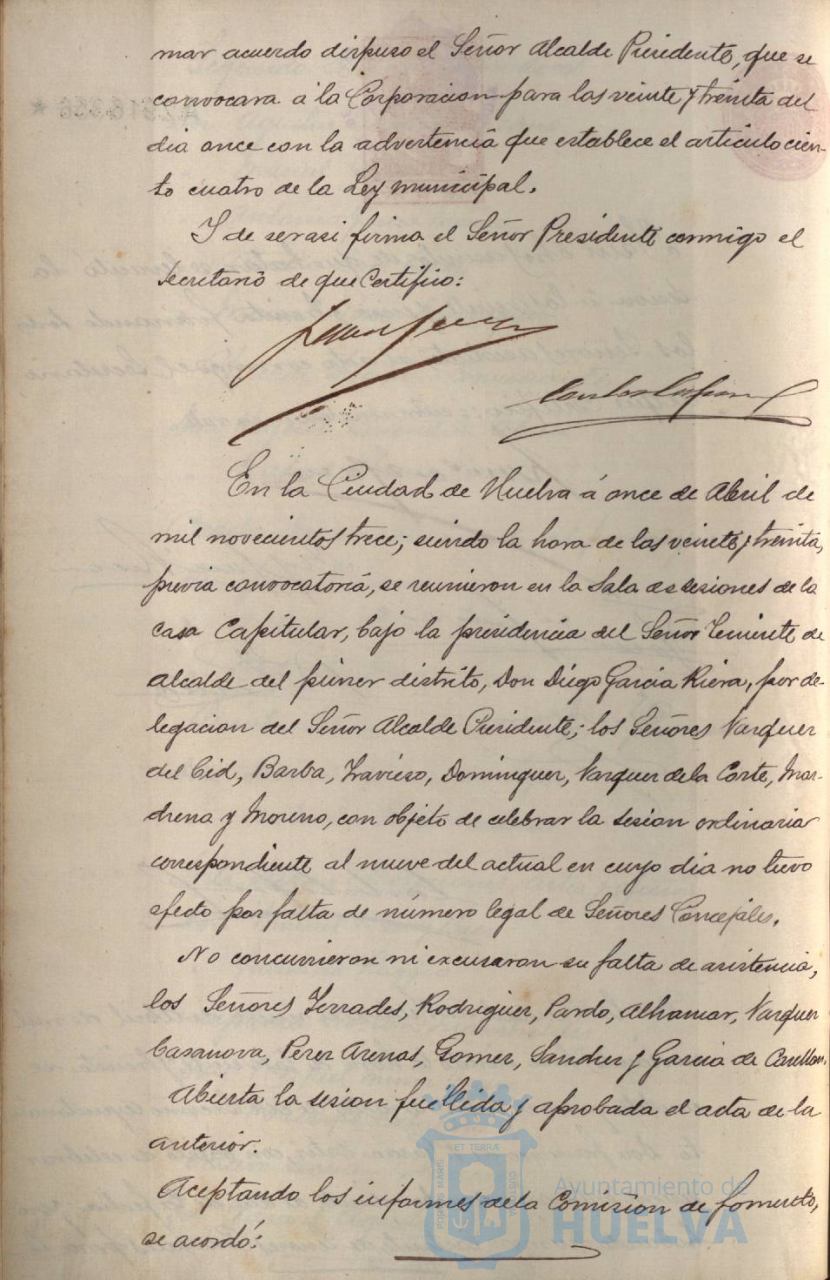 mar acuerdo dispuso el Señor Alcalde Presidente, que se
convocara á la Corporacion para las veinte y treinta del
dia once con la advertencia que establece el articulo cien-
to cuatro de la Ley municipal.
Y de ser asi firma el Señor Presidente conmigo el
Secretario de que Certifico:
En la Ciudad de Huelva á once de Abril de
mil novecientos trece; siendo la hora de las veinte y treinta,
previa convocatoria, se reunieron en la Sala de sesiones de la
Casa Capitular, bajo la presidencia del Señor Teniente de
Alcalde del primer distrito, Don Diego Garcia Riera, por de-
legacion del Señor Alcalde Presidente; los Señores Vazquez
del Cid, Barba, Travieso, Dominguez, Vazquez de la Corte, Mar-
chena y Moreno, con objeto de celebrar la sesion ordinaria
correspondiente al nueve del actual en cuyo dia no tuvo
efecto por falta de número legal de Señores Concejales.
No concurrieron ni excusaron su falta de asistencia,
los Señores Terrades, Rodriguez, Pardo, Alhamar, Vazquez
Casanova, Perez Arenas, Gomez, Sanchez y Garcia de
Abierta la sesion fué leida y aprobada el acta de la
anterior.
Aceptando los informes de la Comision de fomento,
se acordó:
PORTUS MARIS ET TERRÆ CUSTODIO
Ayuntamiento de
HUELVA